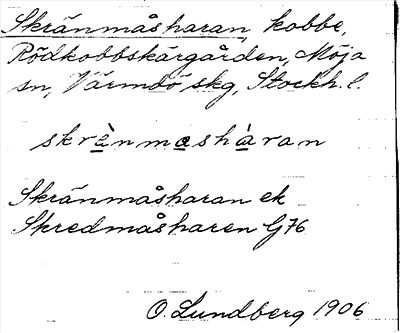 Skränmåsharan, kobbe,
Rödkobbskärgården, Möja
sn, Värmdö skg, Stockh. l.
skrä̀nmashàran
Skränmåsharan ek
Skredmåsharen G76
O. Lundberg 1906